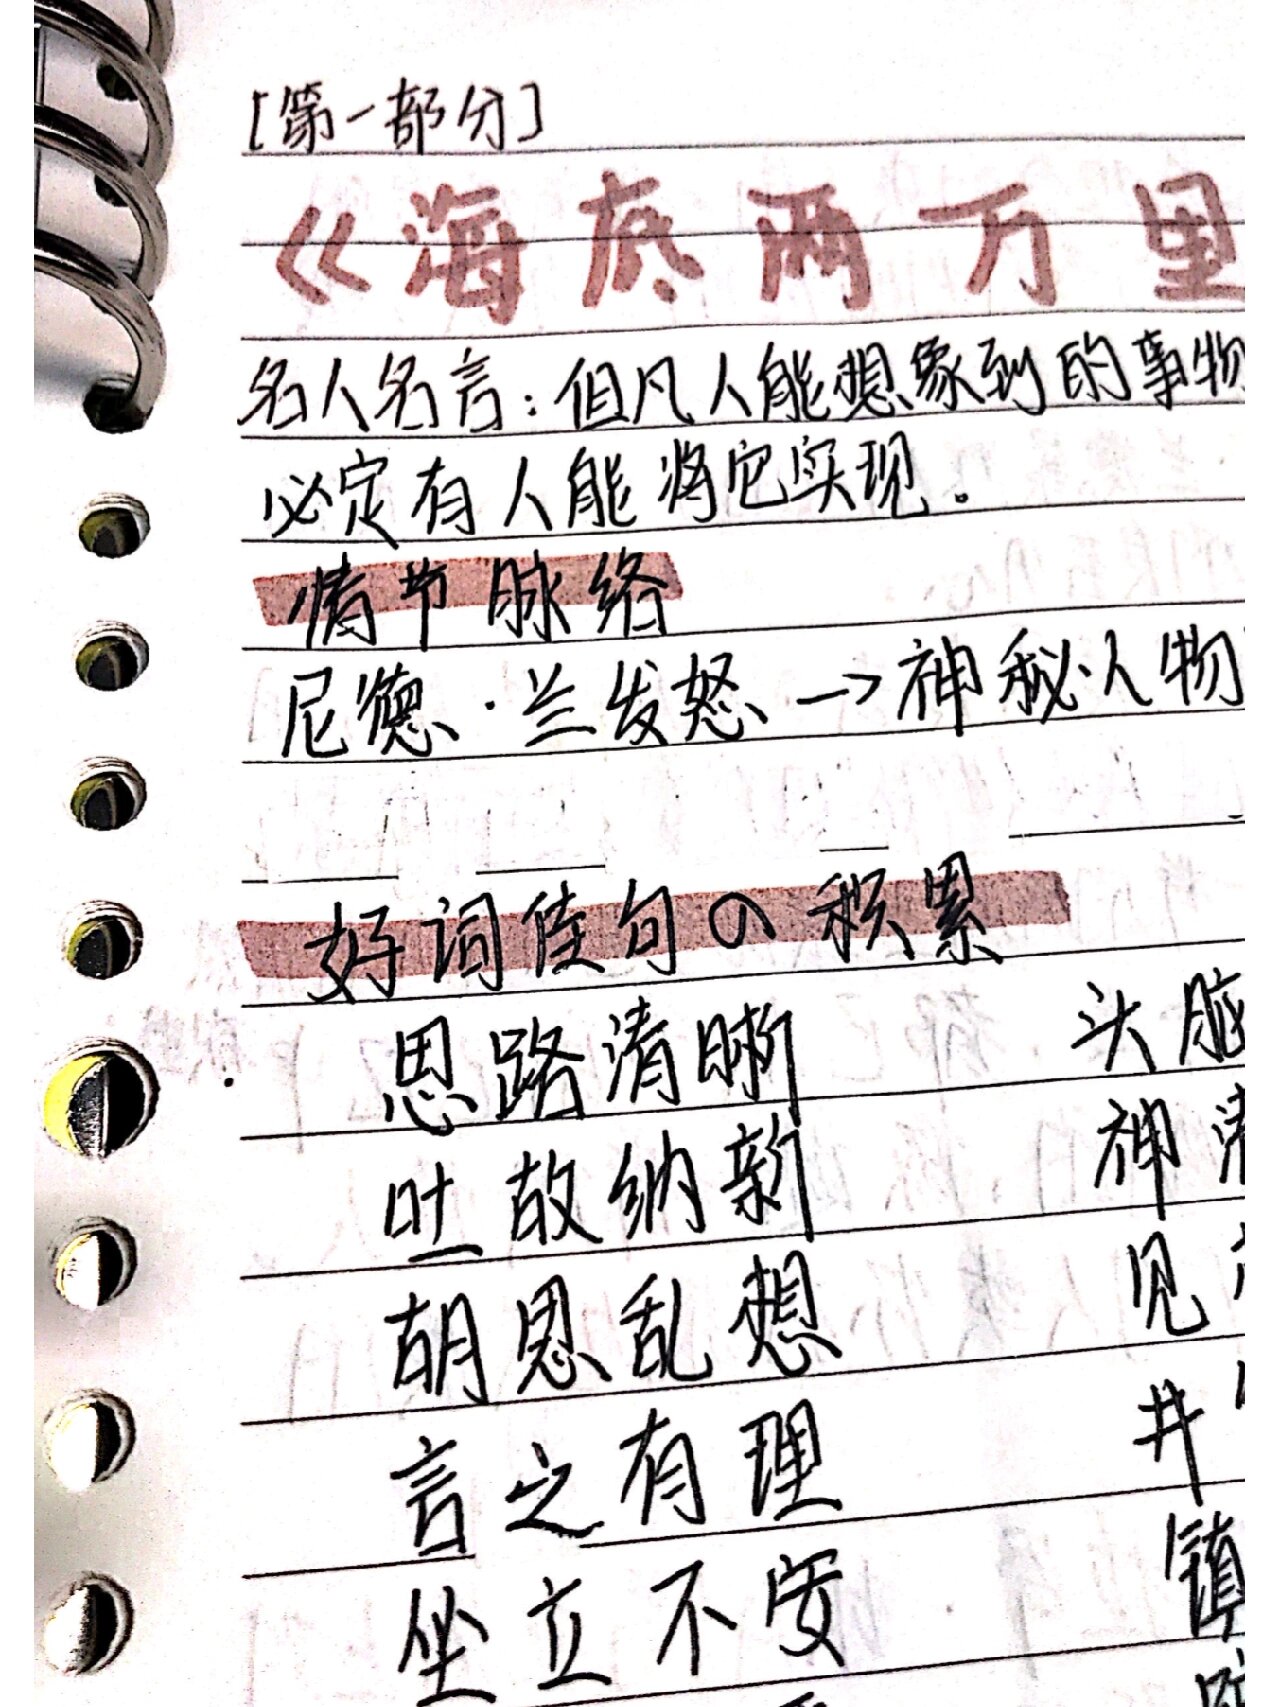 [第一部分]
《海底两万里
名人名言：但凡人能想象到的事物
必定有人能将它实现.
情节脉络
尼德·兰发怒→神秘人物
好词佳句の积累
思路清晰 头脑
吐故纳新 神清
胡思乱想 见
言之有理 井
坐立不安 镇